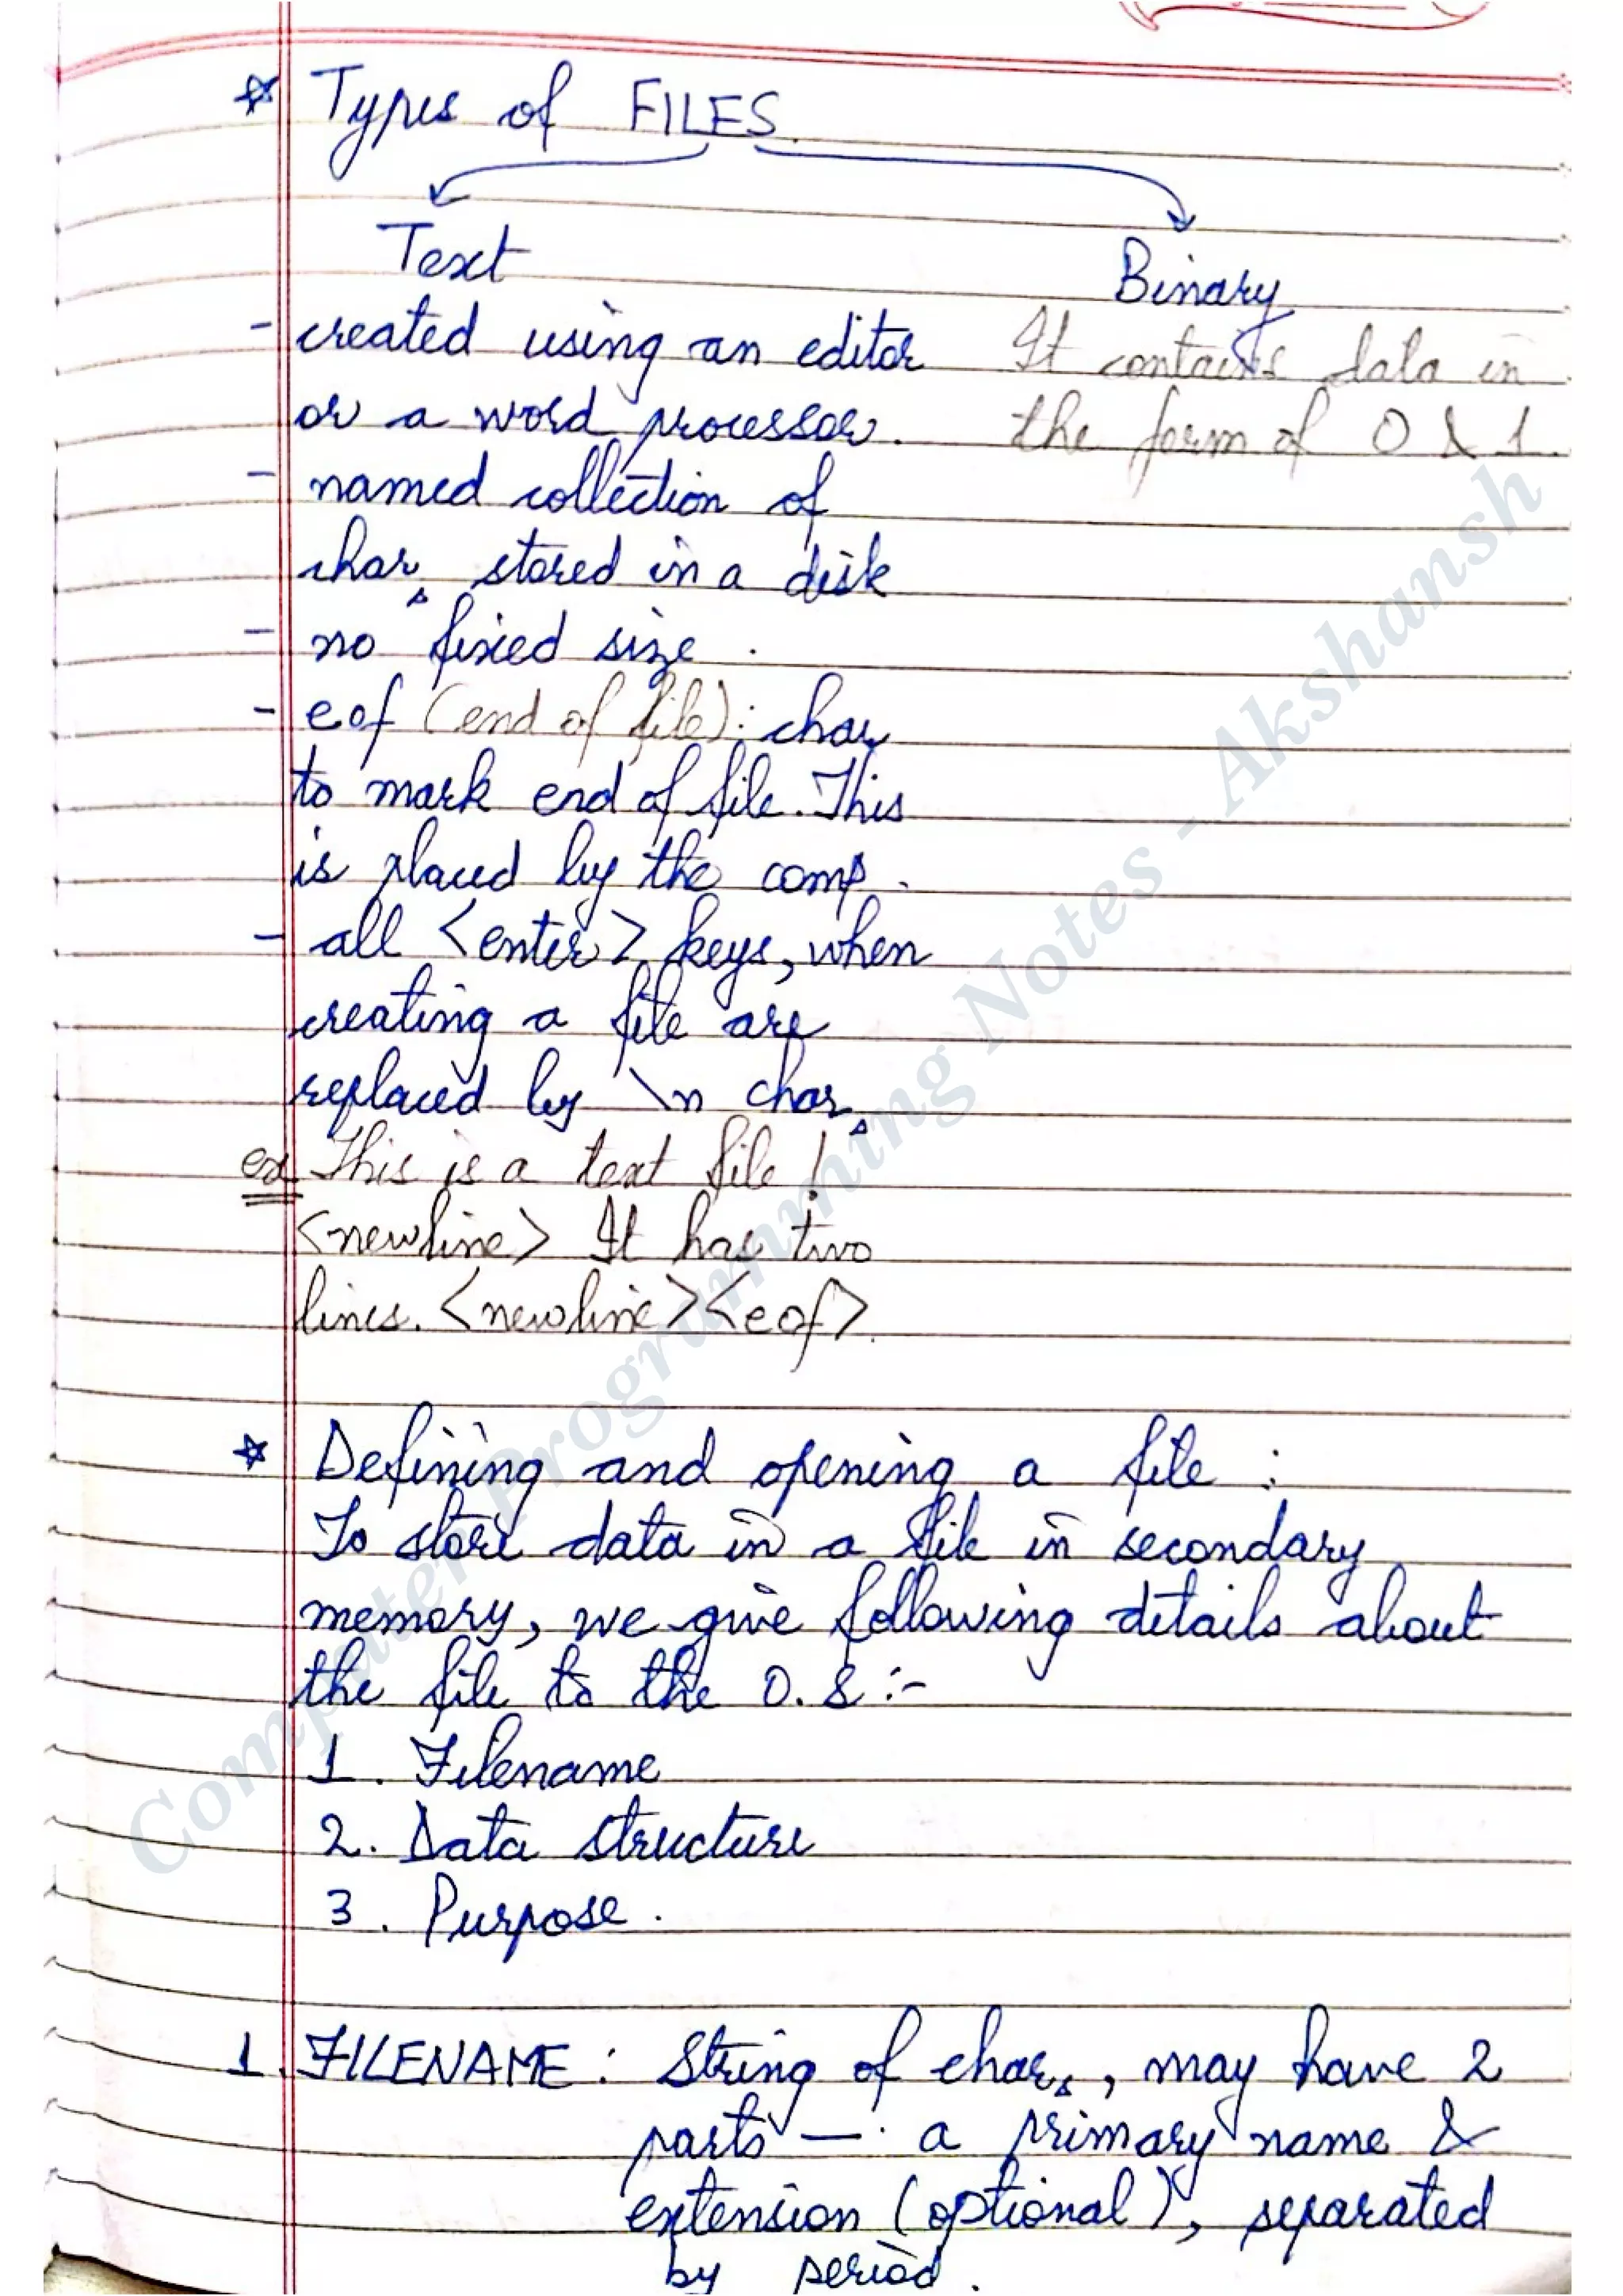 ☆ Types of FILES
Text
Binary
- created using an editor
or a word processor.
- named collection of
chars stored in a disk
- no fixed size.
- eof (end of file): char
to mark end of file. This
is placed by the comp.
- all <enter> keys, when
creating a file are
replaced by \n chars
ex This is a text file!
<newline> It has two
lines. <newline><eof>.
It contains data in
the form of 0 & 1.
☆ Defining and opening a file :
To store data in a file in secondary
memory, we give following details about
the file to the O.S :-
1. Filename
2. Data structure
3. Purpose.
1. FILENAME : String of chars, may have 2
parts - a primary name &
extension (optional), separated
by period.
Computer Programming Notes - Akshansh